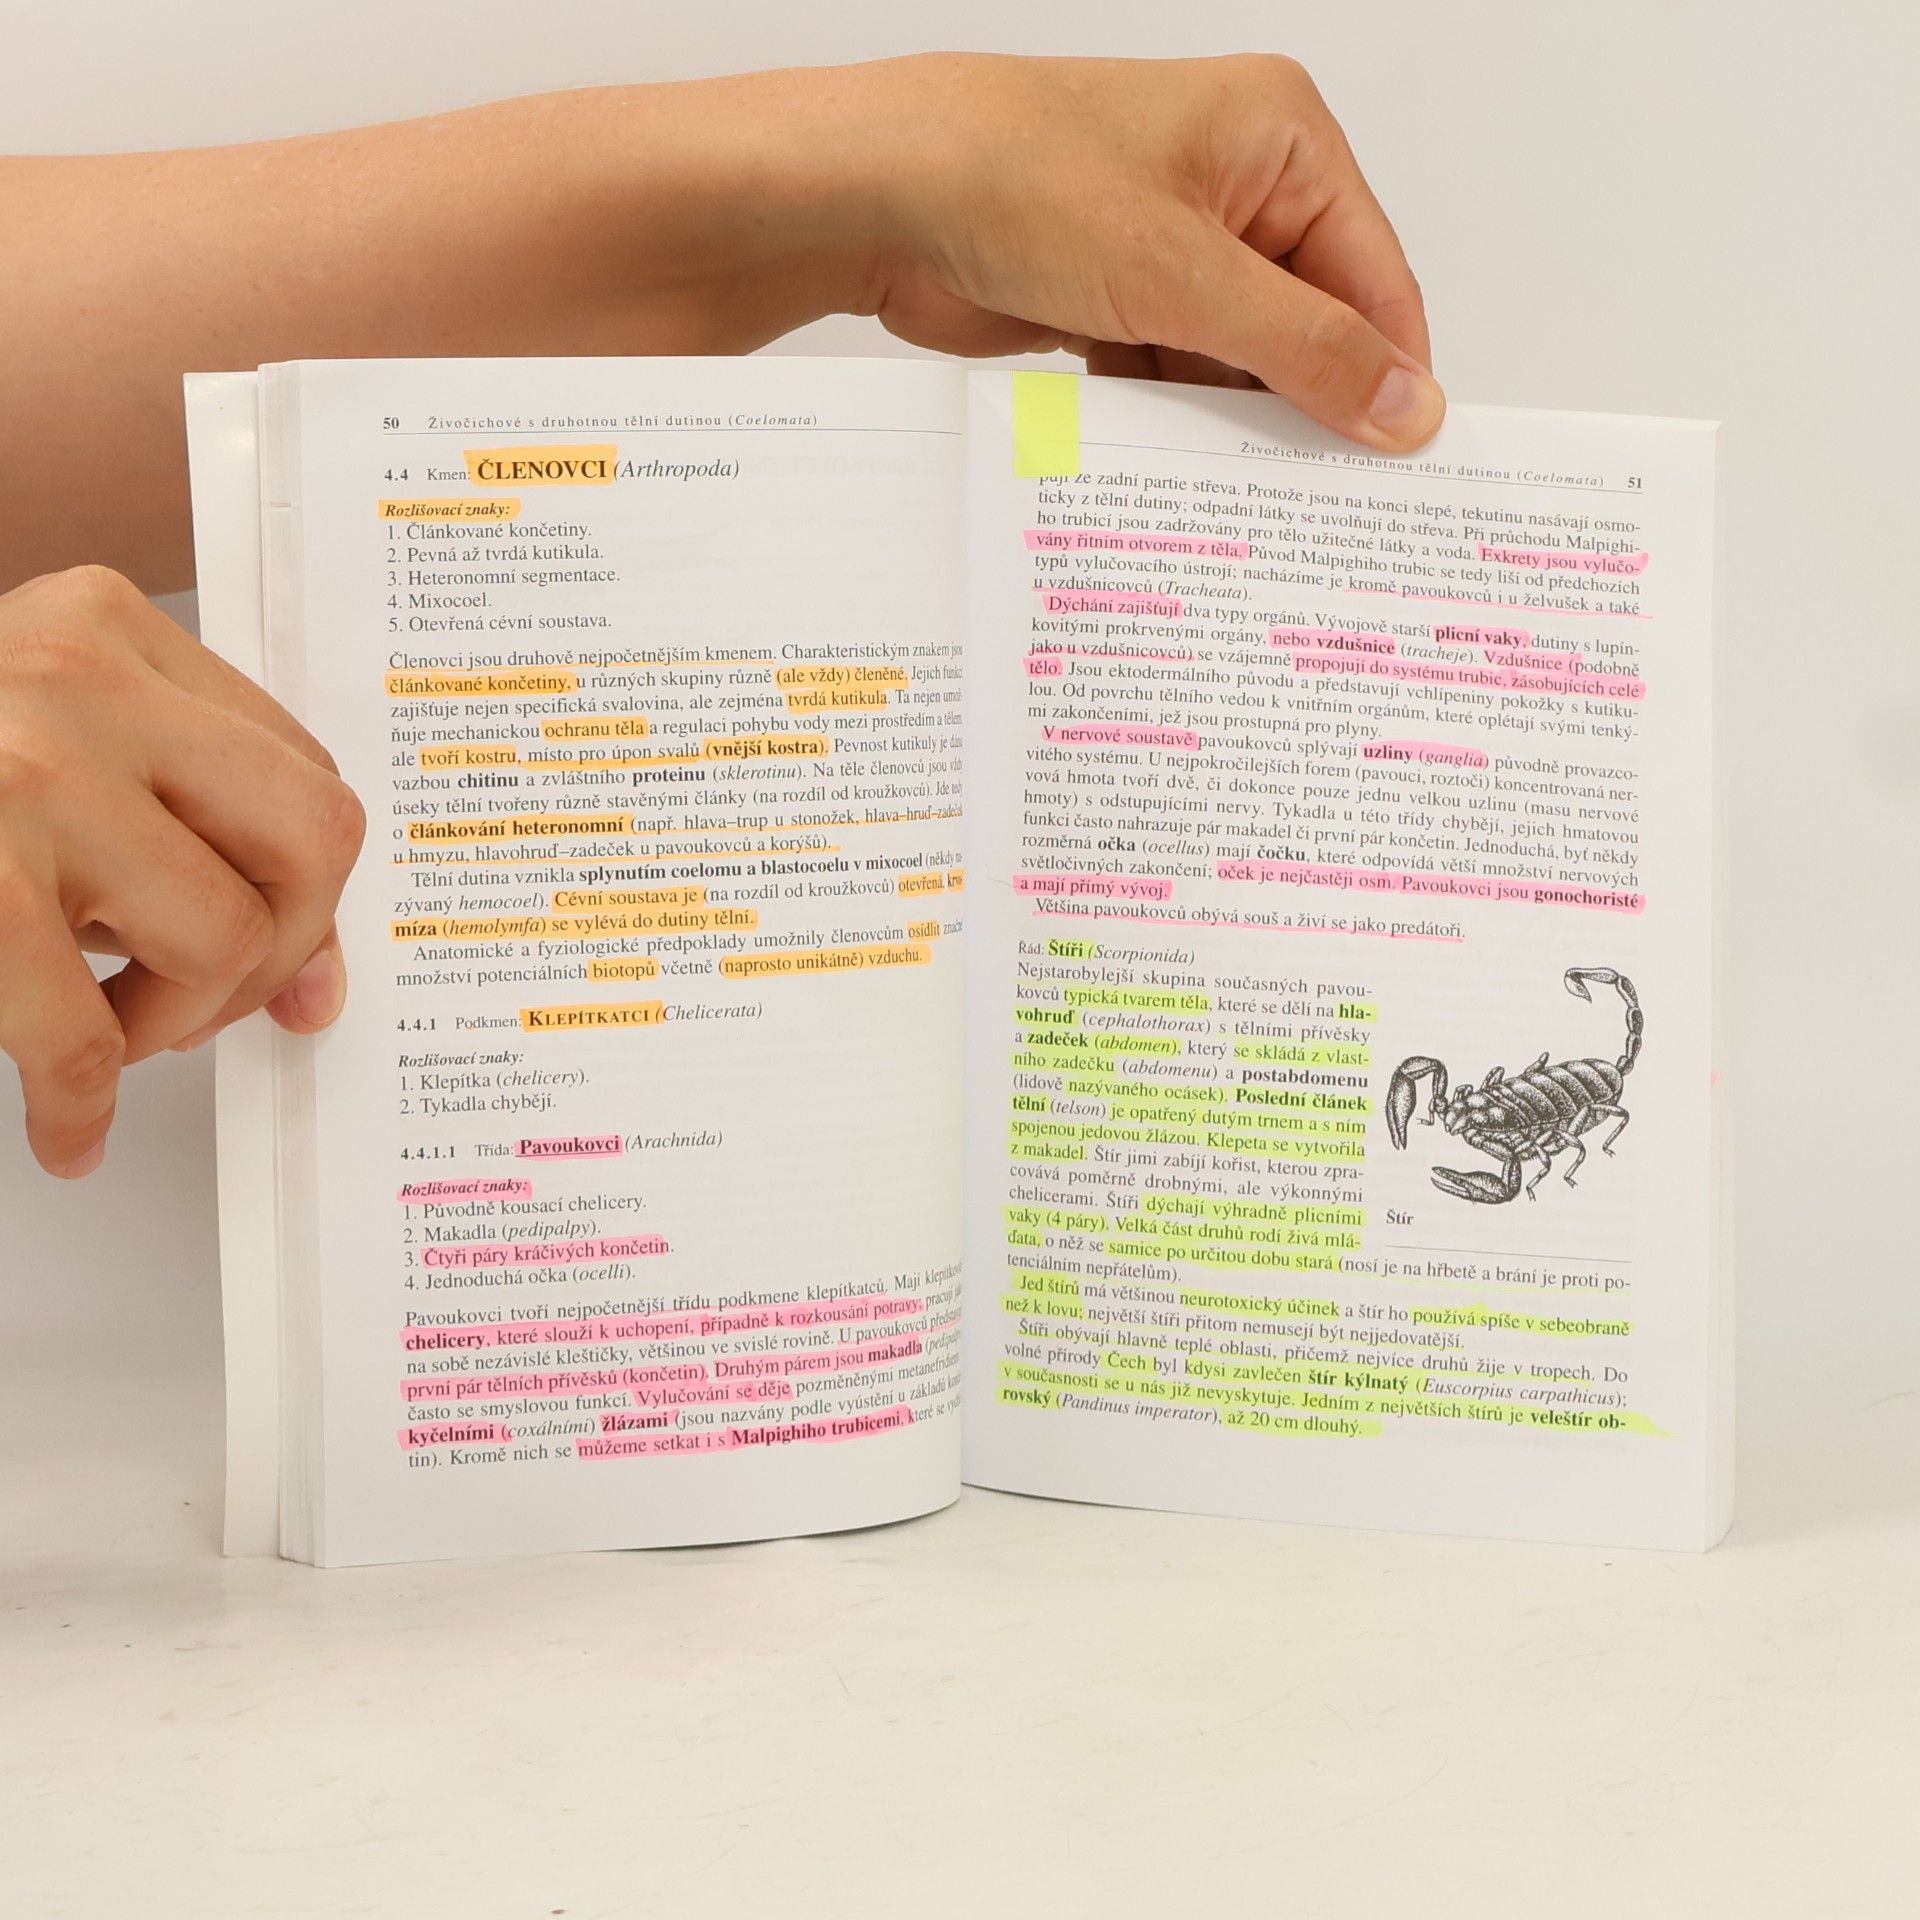 50 Živočichové s druhotnou tělní dutinou (Coelomata)
4.4 Kmen: ČLENOVCI (Arthropoda)
Rozlišovací znaky:
1. Článkované končetiny.
2. Pevná až tvrdá kutikula.
3. Heteronomní segmentace.
4. Mixocoel.
5. Otevřená cévní soustava.
Členovci jsou druhově nejpočetnějším kmenem. Charakteristickým znakem jsou
článkované končetiny, u různých skupiny různě (ale vždy) členěné. Jejich funkci
zajišťuje nejen specifická svalovina, ale zejména tvrdá kutikula. Ta nejen umož-
ňuje mechanickou ochranu těla a regulaci pohybu vody mezi prostředím a tělem,
ale tvoří kostru, místo pro úpon svalů (vnější kostra). Pevnost kutikuly je dána
vazbou chitinu a zvláštního proteinu (sklerotinu). Na těle členovců jsou vždy
úseky tělní tvořeny různě stavěnými články (na rozdíl od kroužkovců). Jde tedy
o článkování heteronomní (např. hlava–trup u stonožek, hlava–hruď–zadeček
u hmyzu, hlavohruď–zadeček u pavoukovců a korýšů).
Tělní dutina vznikla splynutím coelomu a blastocoelu v mixocoel (někdy na-
zývaný hemocoel). Cévní soustava je (na rozdíl od kroužkovců) otevřená, krvo-
míza (hemolymfa) se vylévá do dutiny tělní.
Anatomické a fyziologické předpoklady umožnily členovcům osídlit značné
množství potenciálních biotopů včetně (naprosto unikátně) vzduchu.
4.4.1 Podkmen: KLEPÍTKATCI (Chelicerata)
Rozlišovací znaky:
1. Klepítka (chelicery).
2. Tykadla chybějí.
4.4.1.1 Třída: Pavoukovci (Arachnida)
Rozlišovací znaky:
1. Původně kousací chelicery.
2. Makadla (pedipalpy).
3. Čtyři páry kráčivých končetin.
4. Jednoduchá očka (ocelli).
Pavoukovci tvoří nejpočetnější třídu podkmene klepítkatců. Mají klepítkovité
chelicery, které slouží k uchopení, případně k rozkousání potravy; pracují jako
na sobě nezávislé kleštičky, většinou ve svislé rovině. U pavoukovců představují
první pár tělních přívěsků (končetin). Druhým párem jsou makadla (pedipalpy),
často se smyslovou funkcí. Vylučování se děje pozměněnými metanefridiemi
kyčelními (coxálními) žlázami (jsou nazvány podle vyústění u základů konče-
tin). Kromě nich se můžeme setkat i s Malpighiho trubicemi, které se vychli-
Živočichové s druhotnou tělní dutinou (Coelomata) 51
pují ze zadní partie střeva. Protože jsou na konci slepé, tekutinu nasávají osmo-
ticky z tělní dutiny; odpadní látky se uvolňují do střeva. Při průchodu Malpighi-
ho trubicí jsou zadržovány pro tělo užitečné látky a voda. Exkrety jsou vylučo-
vány řitním otvorem z těla. Původ Malpighiho trubic se tedy liší od předchozích
typů vylučovacího ústrojí; nacházíme je kromě pavoukovců i u želvušek a také
u vzdušnicovců (Tracheata).
Dýchání zajišťují dva typy orgánů. Vývojově starší plicní vaky, dutiny s lupín-
kovitými prokrvenými orgány, nebo vzdušnice (tracheje). Vzdušnice (podobně
jako u vzdušnicovců) se vzájemně propojují do systému trubic, zásobujících celé
tělo. Jsou ektodermálního původu a představují vchlípeniny pokožky s kutiku-
lou. Od povrchu tělního vedou k vnitřním orgánům, které oplétají svými tenký-
mi zakončeními, jež jsou prostupná pro plyny.
V nervové soustavě pavoukovců splývají uzliny (ganglia) původně provazco-
vitého systému. U nejpokročilejších forem (pavouci, roztoči) koncentrovaná ner-
vová hmota tvoří dvě, či dokonce pouze jednu velkou uzlinu (masu nervové
hmoty) s odstupujícími nervy. Tykadla u této třídy chybějí, jejich hmatovou
funkci často nahrazuje pár makadel či první pár končetin. Jednoduchá, byť někdy
rozměrná očka (ocellus) mají čočku, které odpovídá větší množství nervových
světločivných zakončení; oček je nejčastěji osm. Pavoukovci jsou gonochoristé
a mají přímý vývoj.
Většina pavoukovců obývá souš a živí se jako predátoři.
Řád: Štíři (Scorpionida)
Nejstarobylejší skupina současných pavou-
kovců typická tvarem těla, které se dělí na hla-
vohruď (cephalothorax) s tělními přívěsky
a zadeček (abdomen), který se skládá z vlast-
ního zadečku (abdomenu) a postabdomenu
(lidově nazývaného ocásek). Poslední článek
tělní (telson) je opatřený dutým trnem a s ním
spojenou jedovou žlázou. Klepeta se vytvořila
z makadel. Štír jimi zabíjí kořist, kterou zpra-
covává poměrně drobnými, ale výkonnými
chelicerami. Štíři dýchají výhradně plicními
vaky (4 páry). Velká část druhů rodí živá mlá-
ďata, o něž se samice po určitou dobu stará (nosí je na hřbetě a brání je proti po-
tenciálním nepřátelům).
Štír
Jed štírů má většinou neurotoxický účinek a štír ho používá spíše v sebeobraně
než k lovu; největší štíři přitom nemusejí být nejjedovatější.
Štíři obývají hlavně teplé oblasti, přičemž nejvíce druhů žije v tropech. Do
volné přírody Čech byl kdysi zavlečen štír kýlnatý (Euscorpius carpathicus);
v současnosti se u nás již nevyskytuje. Jedním z největších štírů je veleštír ob-
rovský (Pandinus imperator), až 20 cm dlouhý.